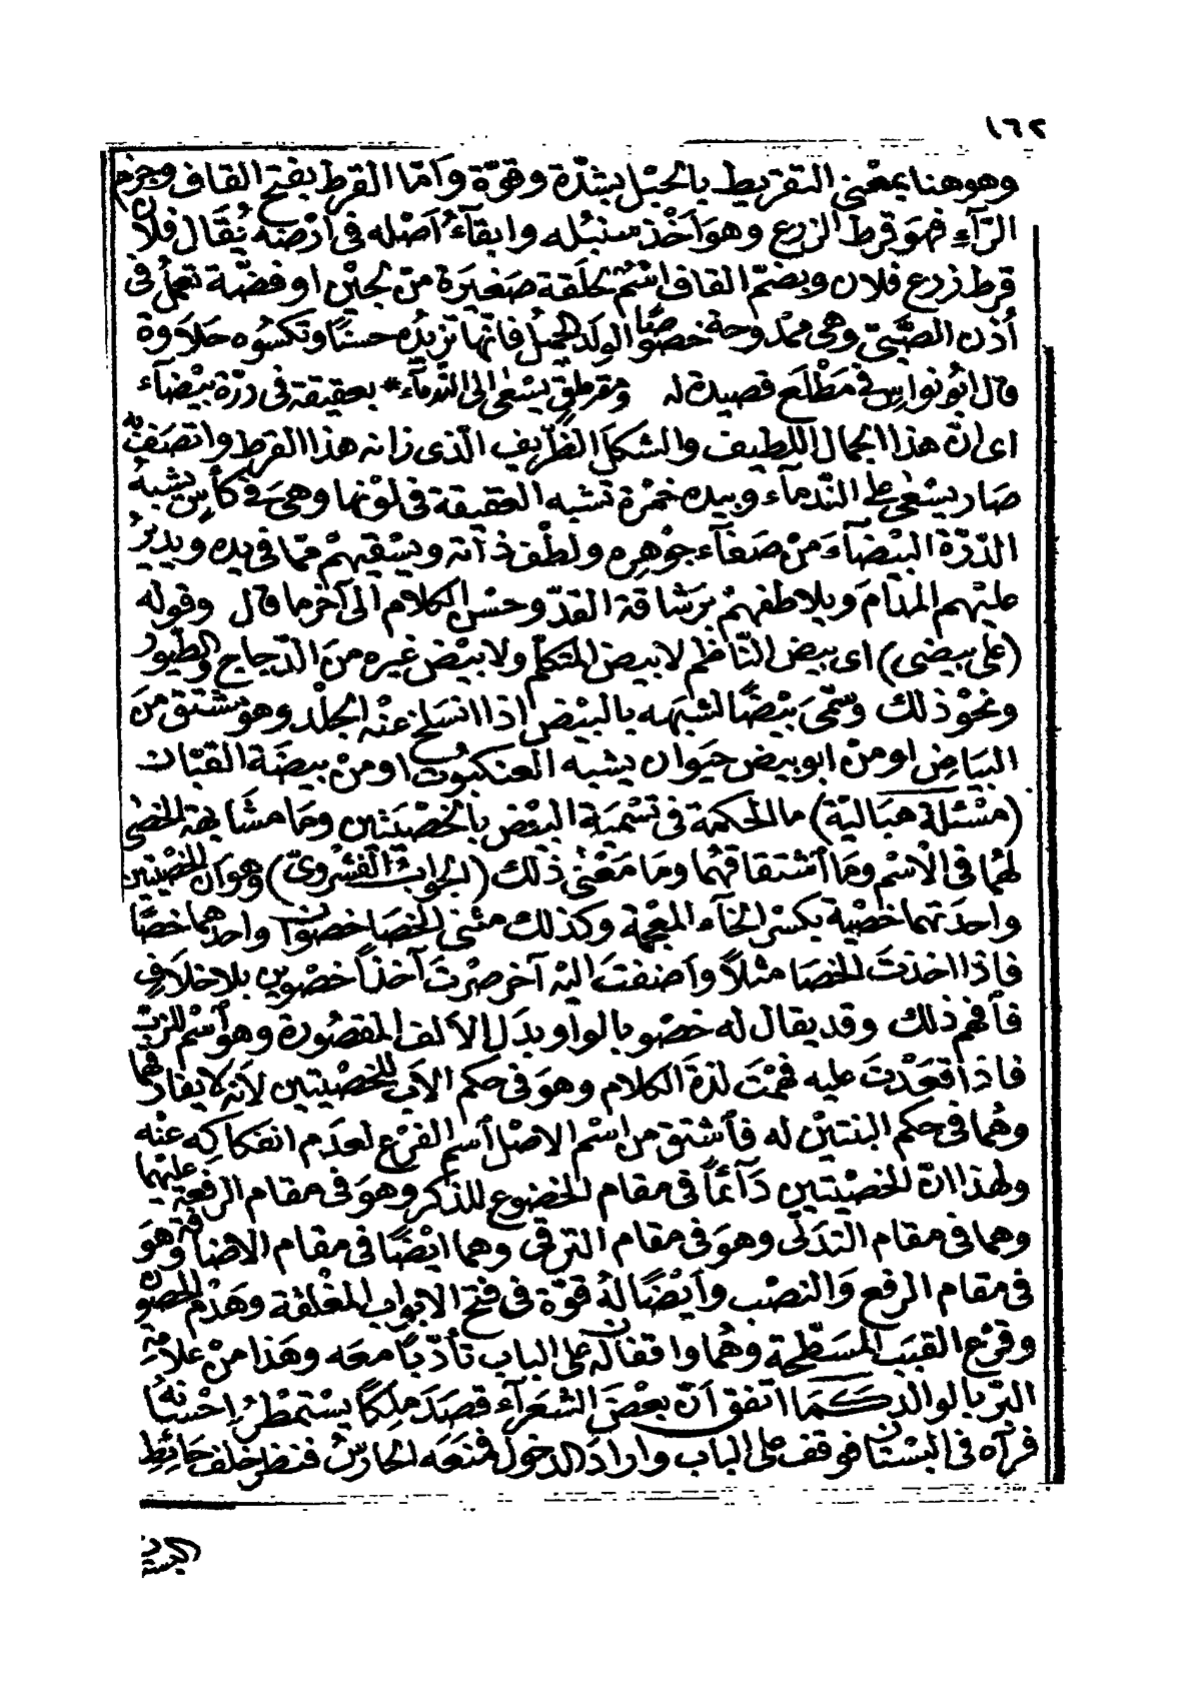 ١٦٢
وهو هنا بمعنى التقريط بالحبْل بشدّة وقوّة وَأمّا القرط بفتح القاف وجزم
الرّآءِ فهوَ قرط الزرع وهوَ اَخْذ سنبُله وابقآءُ اَصْله فى اَرْضه يُقَال فلانٌ
قرط زرع فلان وبضمّ القاف اسْم لحلَقة صَغيرَة منْ لجيْن او فضّة تعملُ فى
أُذن الصَّبىّ وهى ممدوحة خصوصًا الولَد الجميل فانّها تزيدُه حسنًا وتكسُوه حلاَوة
قال ابُو نواس فى مَطْلَع قصيدة له ومقرطق يسْعَى الى النّدمآء * بعقيقة فى درّة بيْضآء
اى انّ هذا الجمال اللطيف والشكلَ الظّريف الّذى زانه هذا القرط واتصَفَ به
صَار يسْعَى على النّدمآء وبيده خمْرة تشبه العقيقة فى لوْنها وهىَ فى كأس يشبهُ
الدّرّة البيْضآءَ منْ صَفآء جوْهره ولطْف ذاته ويسْقيهمْ ممّا فى يده ويديرُ
عليْهم المدَامَ ويلاطفهمْ برَشاقة القدّ وحسْن الكلام الى آخر ما قال وقوله
(على بيضى) اى بيض النّاظم لا بيض المتكلّم ولا بيْض غيره منَ الدّجاج والطّيور
ونحوْ ذلك وسمّىَ بيْضًا لشبَهه بالبيْض اذا انسَلخ عنْه الجلْد وهوَ مشْتقّ منَ
البيَاض او منْ ابو بيض حيَوان يشبه العنكبُوت او منْ بيضَة القبّان
(مسْئلة هبَاليّة) ما الحكمة فى تسْميَة البيْض بالخصْيَتين ومَا مشَابهة الخصَى
لهُما فى الاْسْم ومَا اشتقاقهُما ومَا مَعْنى ذلك (الجوَابُ الفشْروىّ) وهوَ ان الخصْيتين
واحدَتهما خصْية بكسْر الخآء المعْجمة وكذلك مثنى الخصَا خصْوَان واحدهما خصًا
فاذا اخذتَ الخصَا مثلاً وأضفتَ اليْه آخر صرْتَ آخذاً خصْوين بلا خلاَف
فأفهم ذلك وقد يقال له خصْو بالواو بدَل الاَلف المقصُورة وهوَ أسْم للزبّ
فاذا قعَدْتَ عليه فهمْتَ لذةَ الكلام وهوَ فى حكم الاَب للخصْيتين لأنه لا يفارقهما
وهُما فى حكم البنتيْن له فأشتقّ من اسْم الاصْل أسم الفرْع لعدَم انفكاكه عنْه
ولهذا انّ الخصْيتين دَآئماً فى مقام الخضوع للذكر وهوَ فى مقام الرفعة عليْهما
وهما فى مقام التدَلّى وهوَ فى مقام الترقى وهما ايْضًا فى مقام الاضافة وهوَ
فى مقام الرفع وَالنصْب وأيْضًا لهُ قوّة فى فتح الابواب المغْلقة وهَدْم الحصُون
وقرْع القبَب المسَطّحة وهُما واقفان على الباب تأدّبًا معَه وهَذا منْ علاَمة
البرّ بالوالد كَمَا اتّفق اَنّ بعْضَ الشعَرآء قصَدَ ملِكًا يسْتمْطرُ إحْسَانهُ
فرآه فى البسْتان فوقف على الباب وارادَ الدخول فمنَعَه الحَارسُ فنظر خلف حَائطِ
البستان